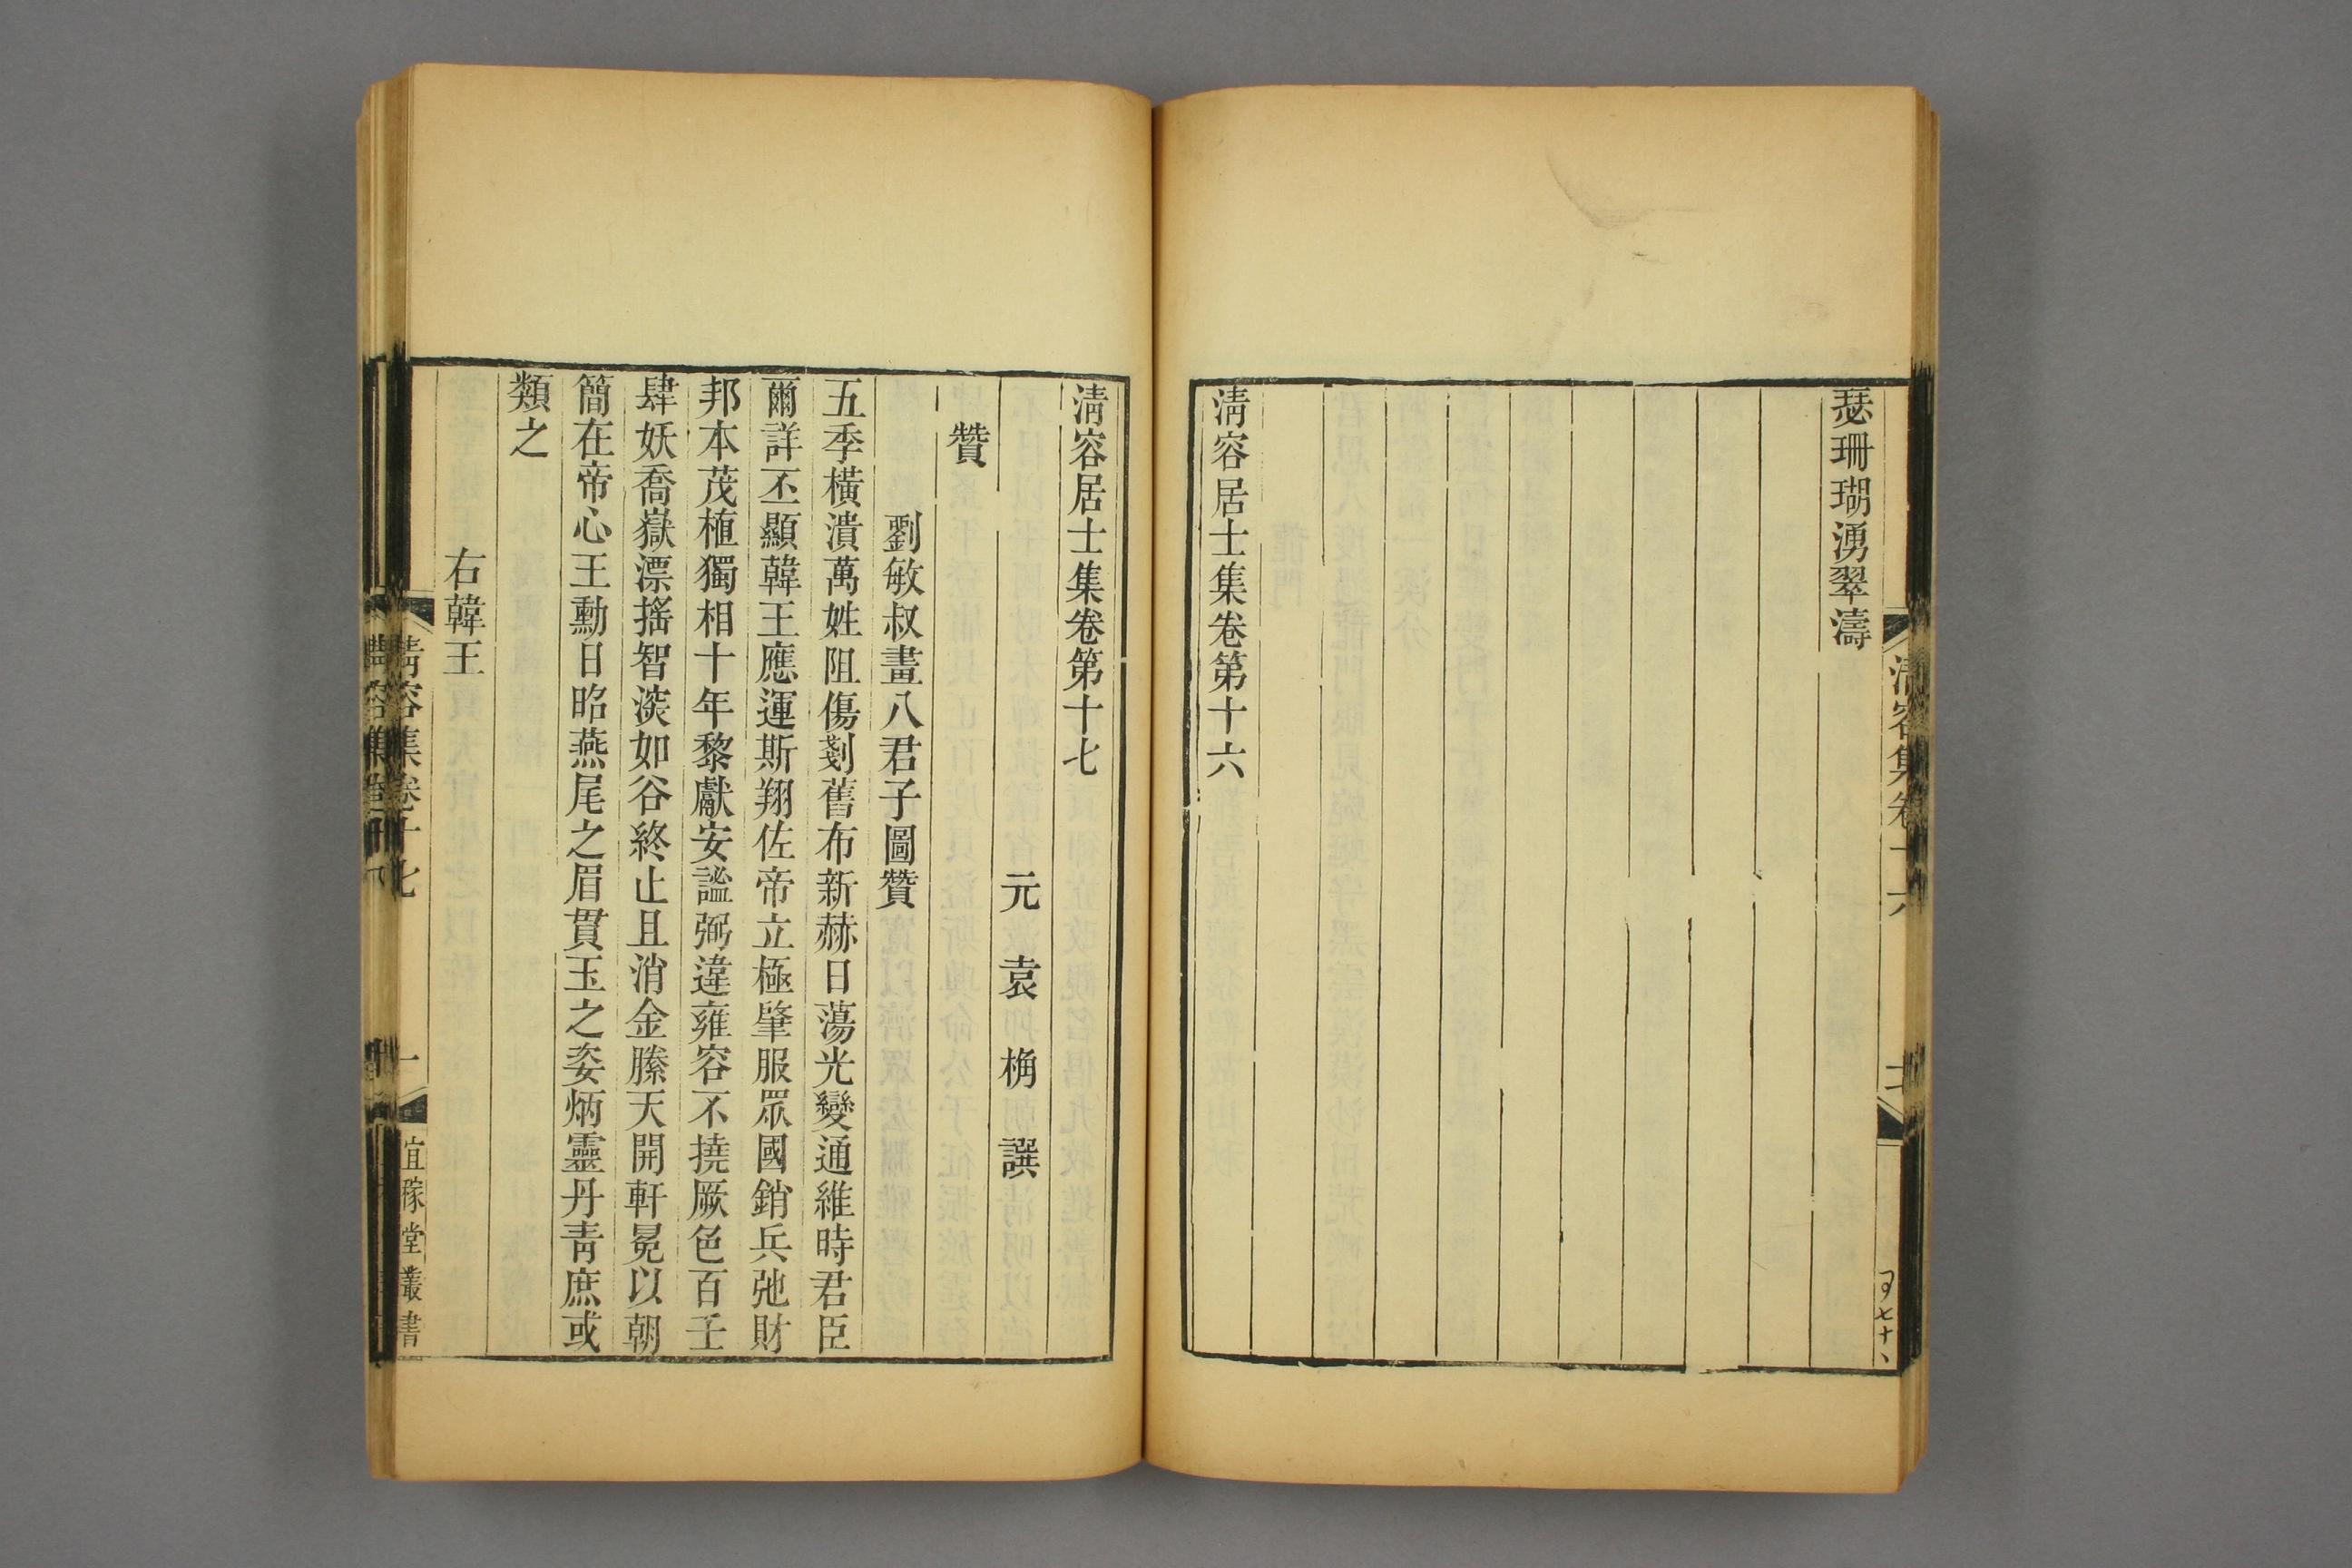 瑟珊瑚湧翠濤
清容居士集卷第十六
清容集卷十六
清容居士集卷第十七
元袁桷譔
贊
劉敏叔畫八君子圖贊
五季橫潰萬姓阻傷剗舊布新赫日蕩光變通維時君臣
爾詳丕顯韓王應運斯翔佐帝立極肇服眾國銷兵弛財
邦本茂植獨相十年黎獻安謐弼違雍容不撓厥色百壬
肆妖喬嶽漂搖智淡如谷終止且消金縢天開軒冕以朝
簡在帝心王勳日昭燕尾之眉貫玉之姿炳靈丹青庶或
類之
右韓王
清容集卷十七
一
宜稼堂叢書